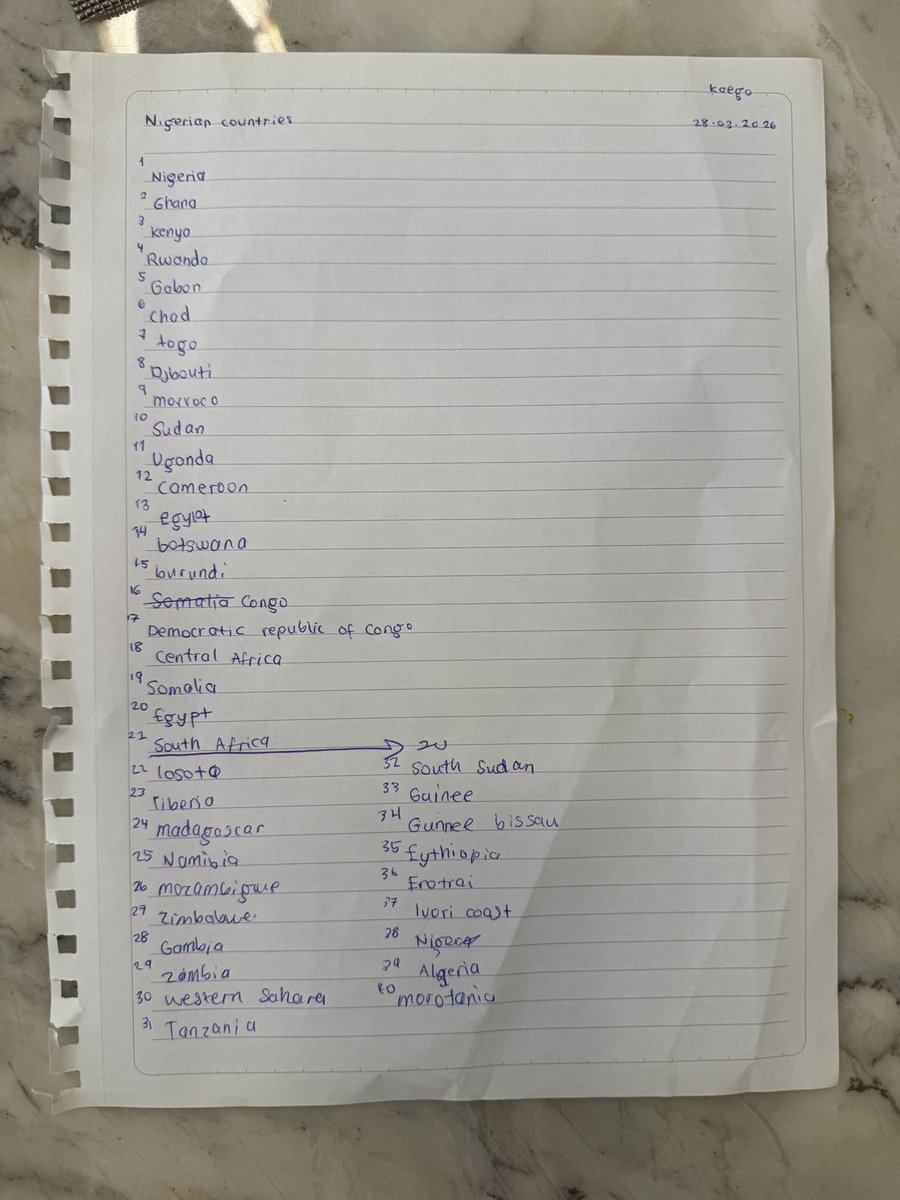 kaego
Nigerian countries
28.03.2026
1 Nigeria
2 Ghana
3 kenya
4 Rwanda
5 Gabon
6 chad
7 togo
8 Djbouti
9 morroco
10 Sudan
11 Uganda
12 Cameroon
13 egypt
14 botswana
15 burundi
16 Somalia Congo
17 Democratic republic of Congo
18 Central Africa
19 Somalia
20 Egypt
21 South Africa
22 losoto
23 riberia
24 madagascar
25 Namibia
26 mozambique
27 Zimbabwe
28 Gambia
29 zambia
30 western Sahara
31 Tanzania
32 South Sudan
33 Guinee
34 Gunnee bissau
35 Eythiopia
36 Erotrai
37 Ivori coast
38 Niger
39 Algeria
40 morotania